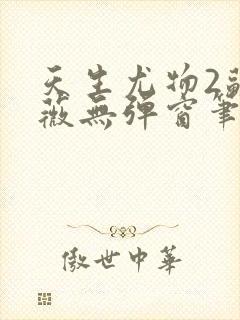 天生尤物2
薇無彈窗筆
傲世中華